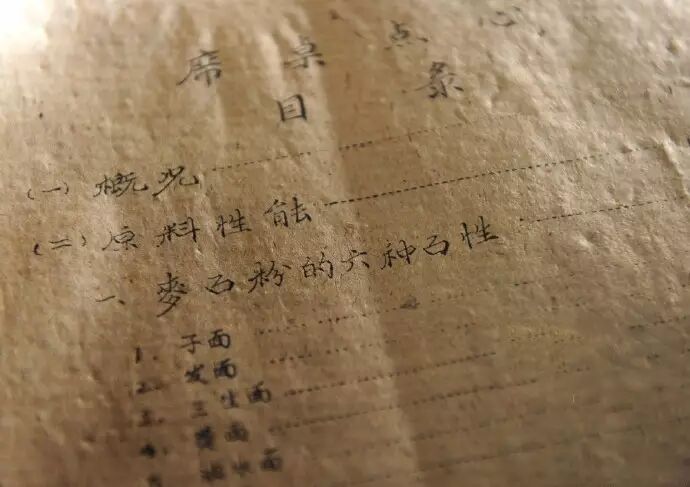 席桌点心
目录
(一)概况
(二)原料性能
一、麥面粉的六种面性
1. 子面
2. 发面
3. 三生面
4. 面
5. 面